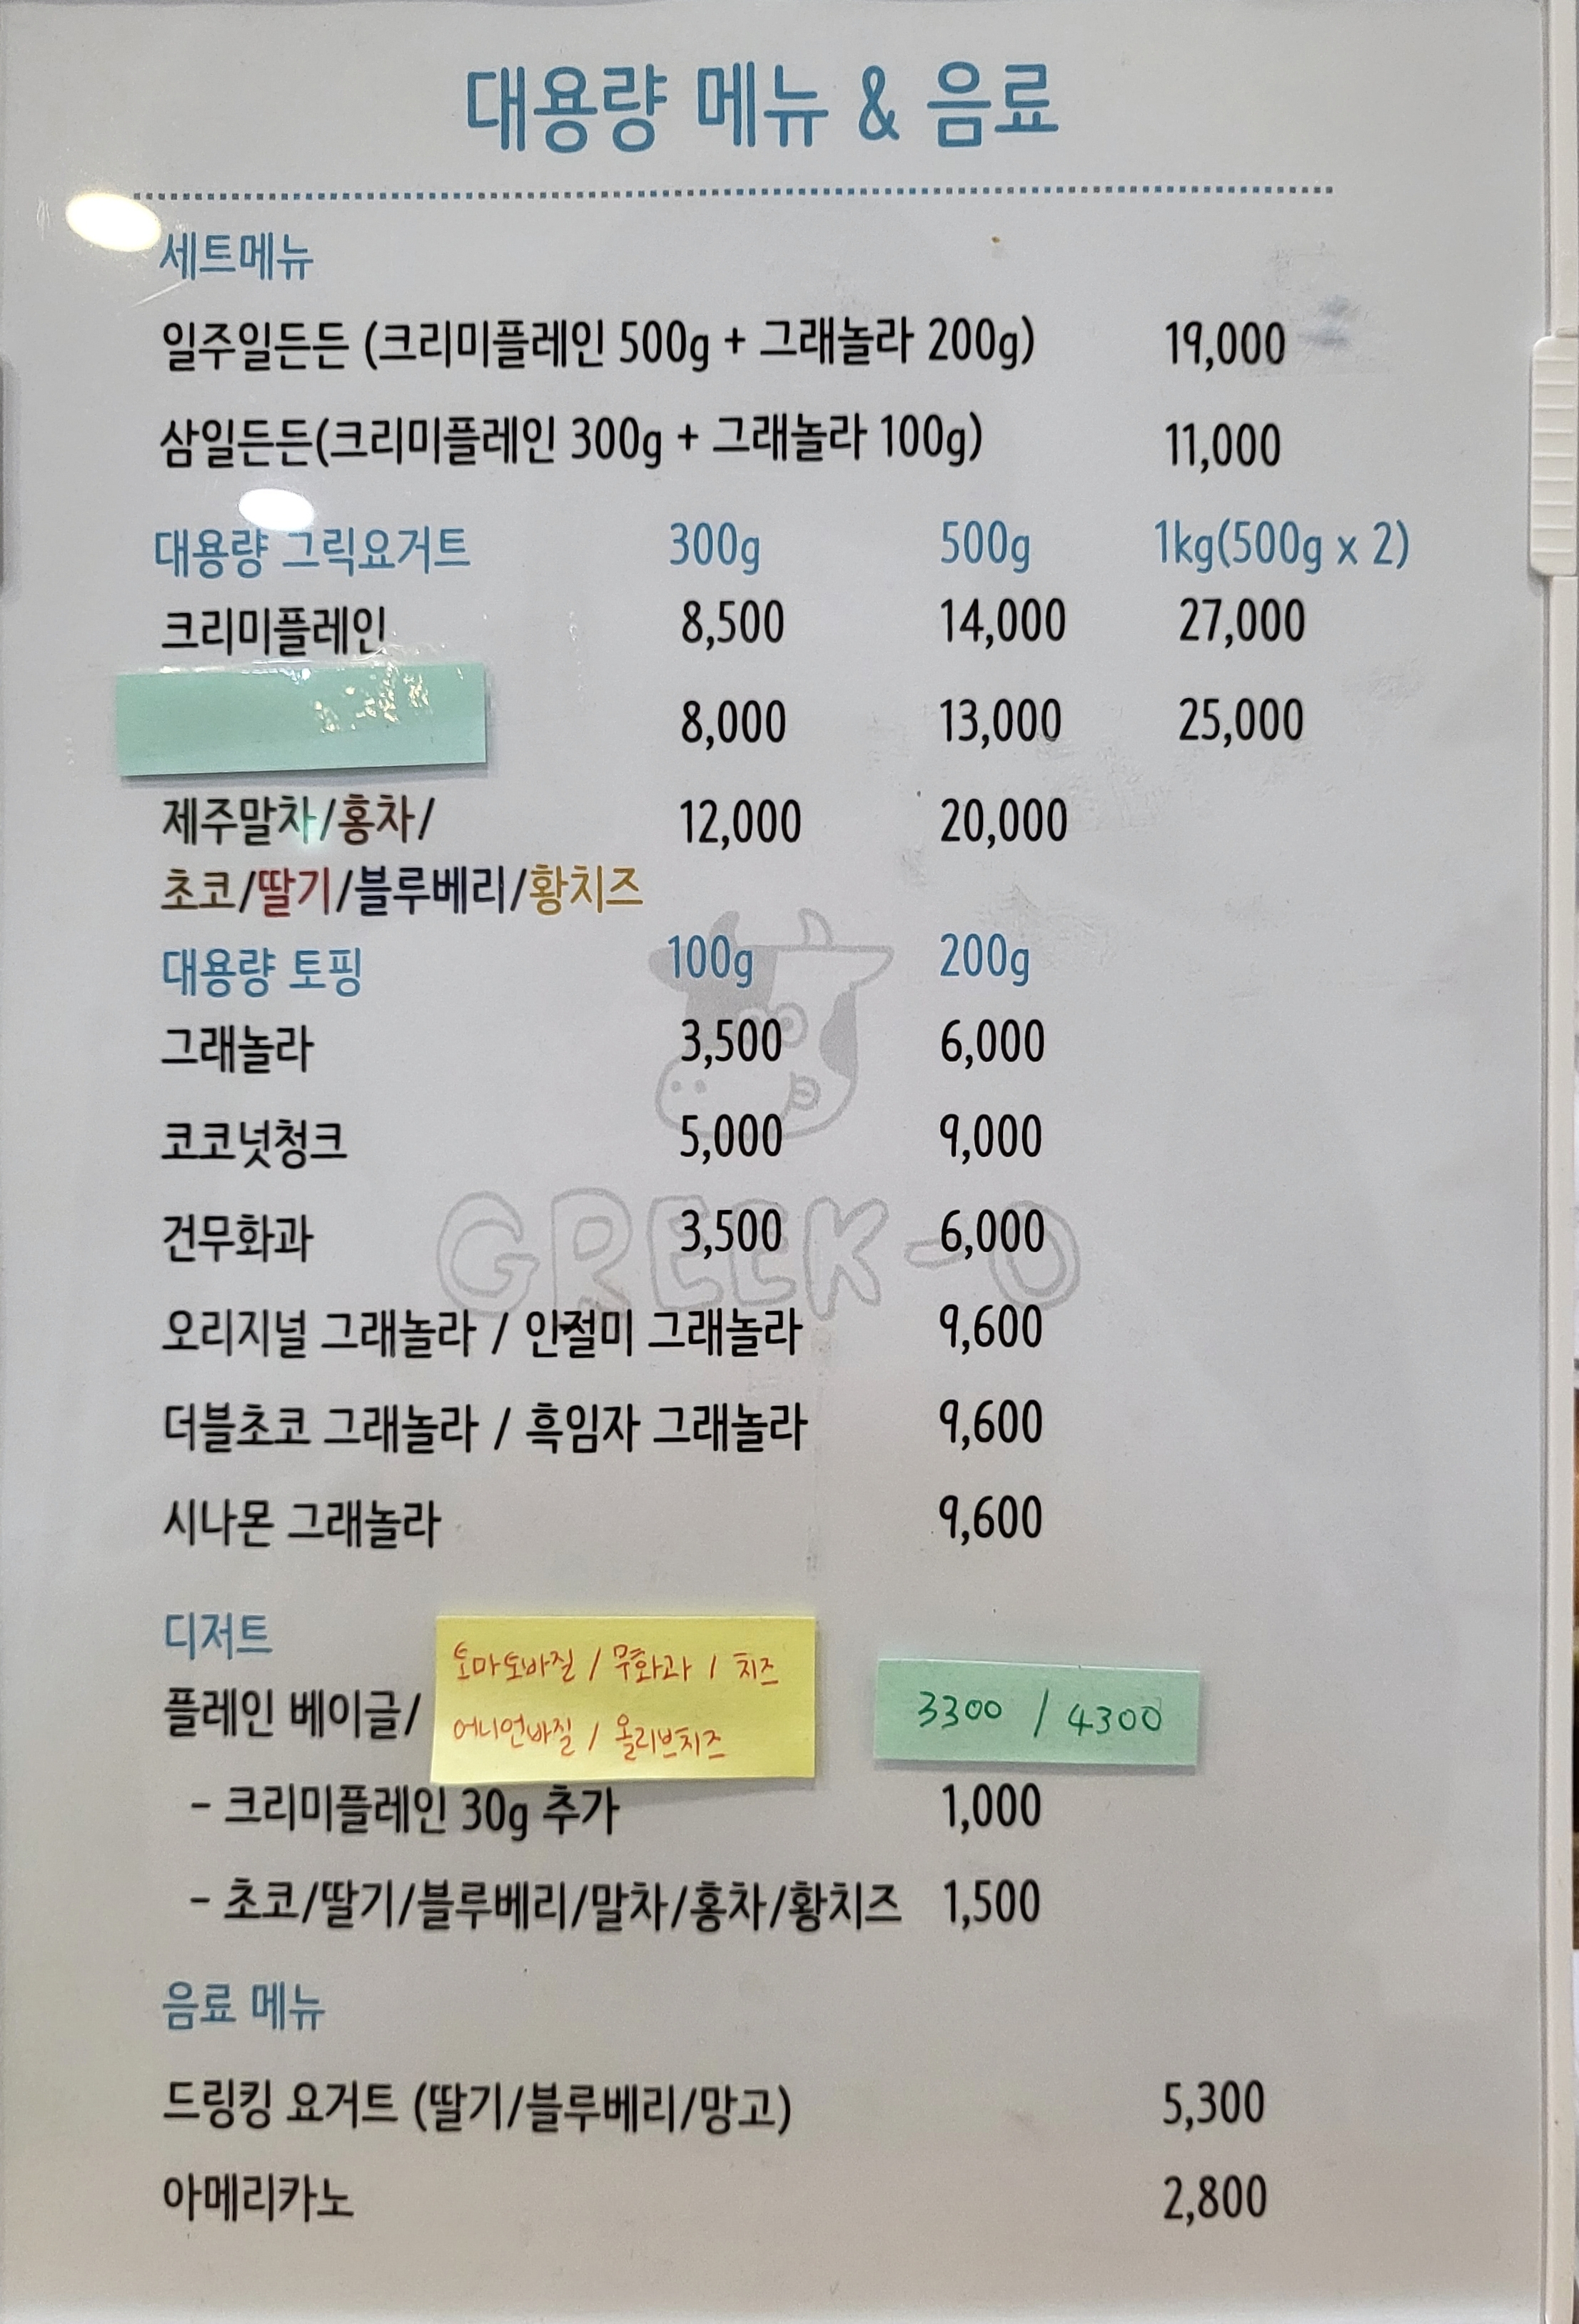 대용량 메뉴 & 음료
세트메뉴
일주일든든 (크리미플레인 500g + 그래놀라 200g) 19,000
삼일든든(크리미플레인 300g + 그래놀라 100g) 11,000
대용량 그릭요거트 300g 500g 1kg(500g x 2)
크리미플레인 8,500 14,000 27,000
8,000 13,000 25,000
제주말차/홍차/ 12,000 20,000
초코/딸기/블루베리/황치즈
대용량 토핑 100g 200g
그래놀라 3,500 6,000
코코넛청크 5,000 9,000
건무화과 3,500 6,000
GREEK-O
오리지널 그래놀라 / 인절미 그래놀라 9,600
더블초코 그래놀라 / 흑임자 그래놀라 9,600
시나몬 그래놀라 9,600
디저트
토마토바질 / 무화과 / 치즈
플레인 베이글/ 3300 / 4300
어니언바질 / 올리브치즈
- 크리미플레인 30g 추가 1,000
- 초코/딸기/블루베리/말차/홍차/황치즈 1,500
음료 메뉴
드링킹 요거트 (딸기/블루베리/망고) 5,300
아메리카노 2,800